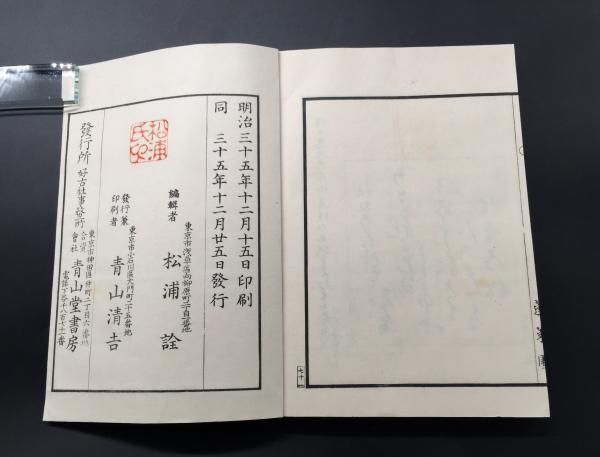 明治三十五年十二月十五日印刷
同 三十五年十二月廿五日發行
東京市浅草區向柳原町二丁目一番地
編輯者 松浦詮
東京市小石川區大門町二十五番地
發行兼印刷者 青山清吉
松浦氏印
發行所 好古社事務所
東京市神田區仲町二丁目六番地
合資會社 青山堂書房
電話下谷千八百七十一番